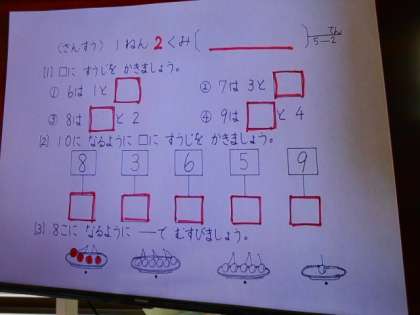 (さんすう) 1ねん 2くみ( )てん
5-2
(1) □に すうじを かきましょう。
① 6は 1と □ ② 7は 3と □
③ 8は □と 2 ④ 9は □と 4
(2) 10に なるように □に すうじを かきましょう。
8 3 6 5 9
(3) 8こに なるように ―で むすびましょう。